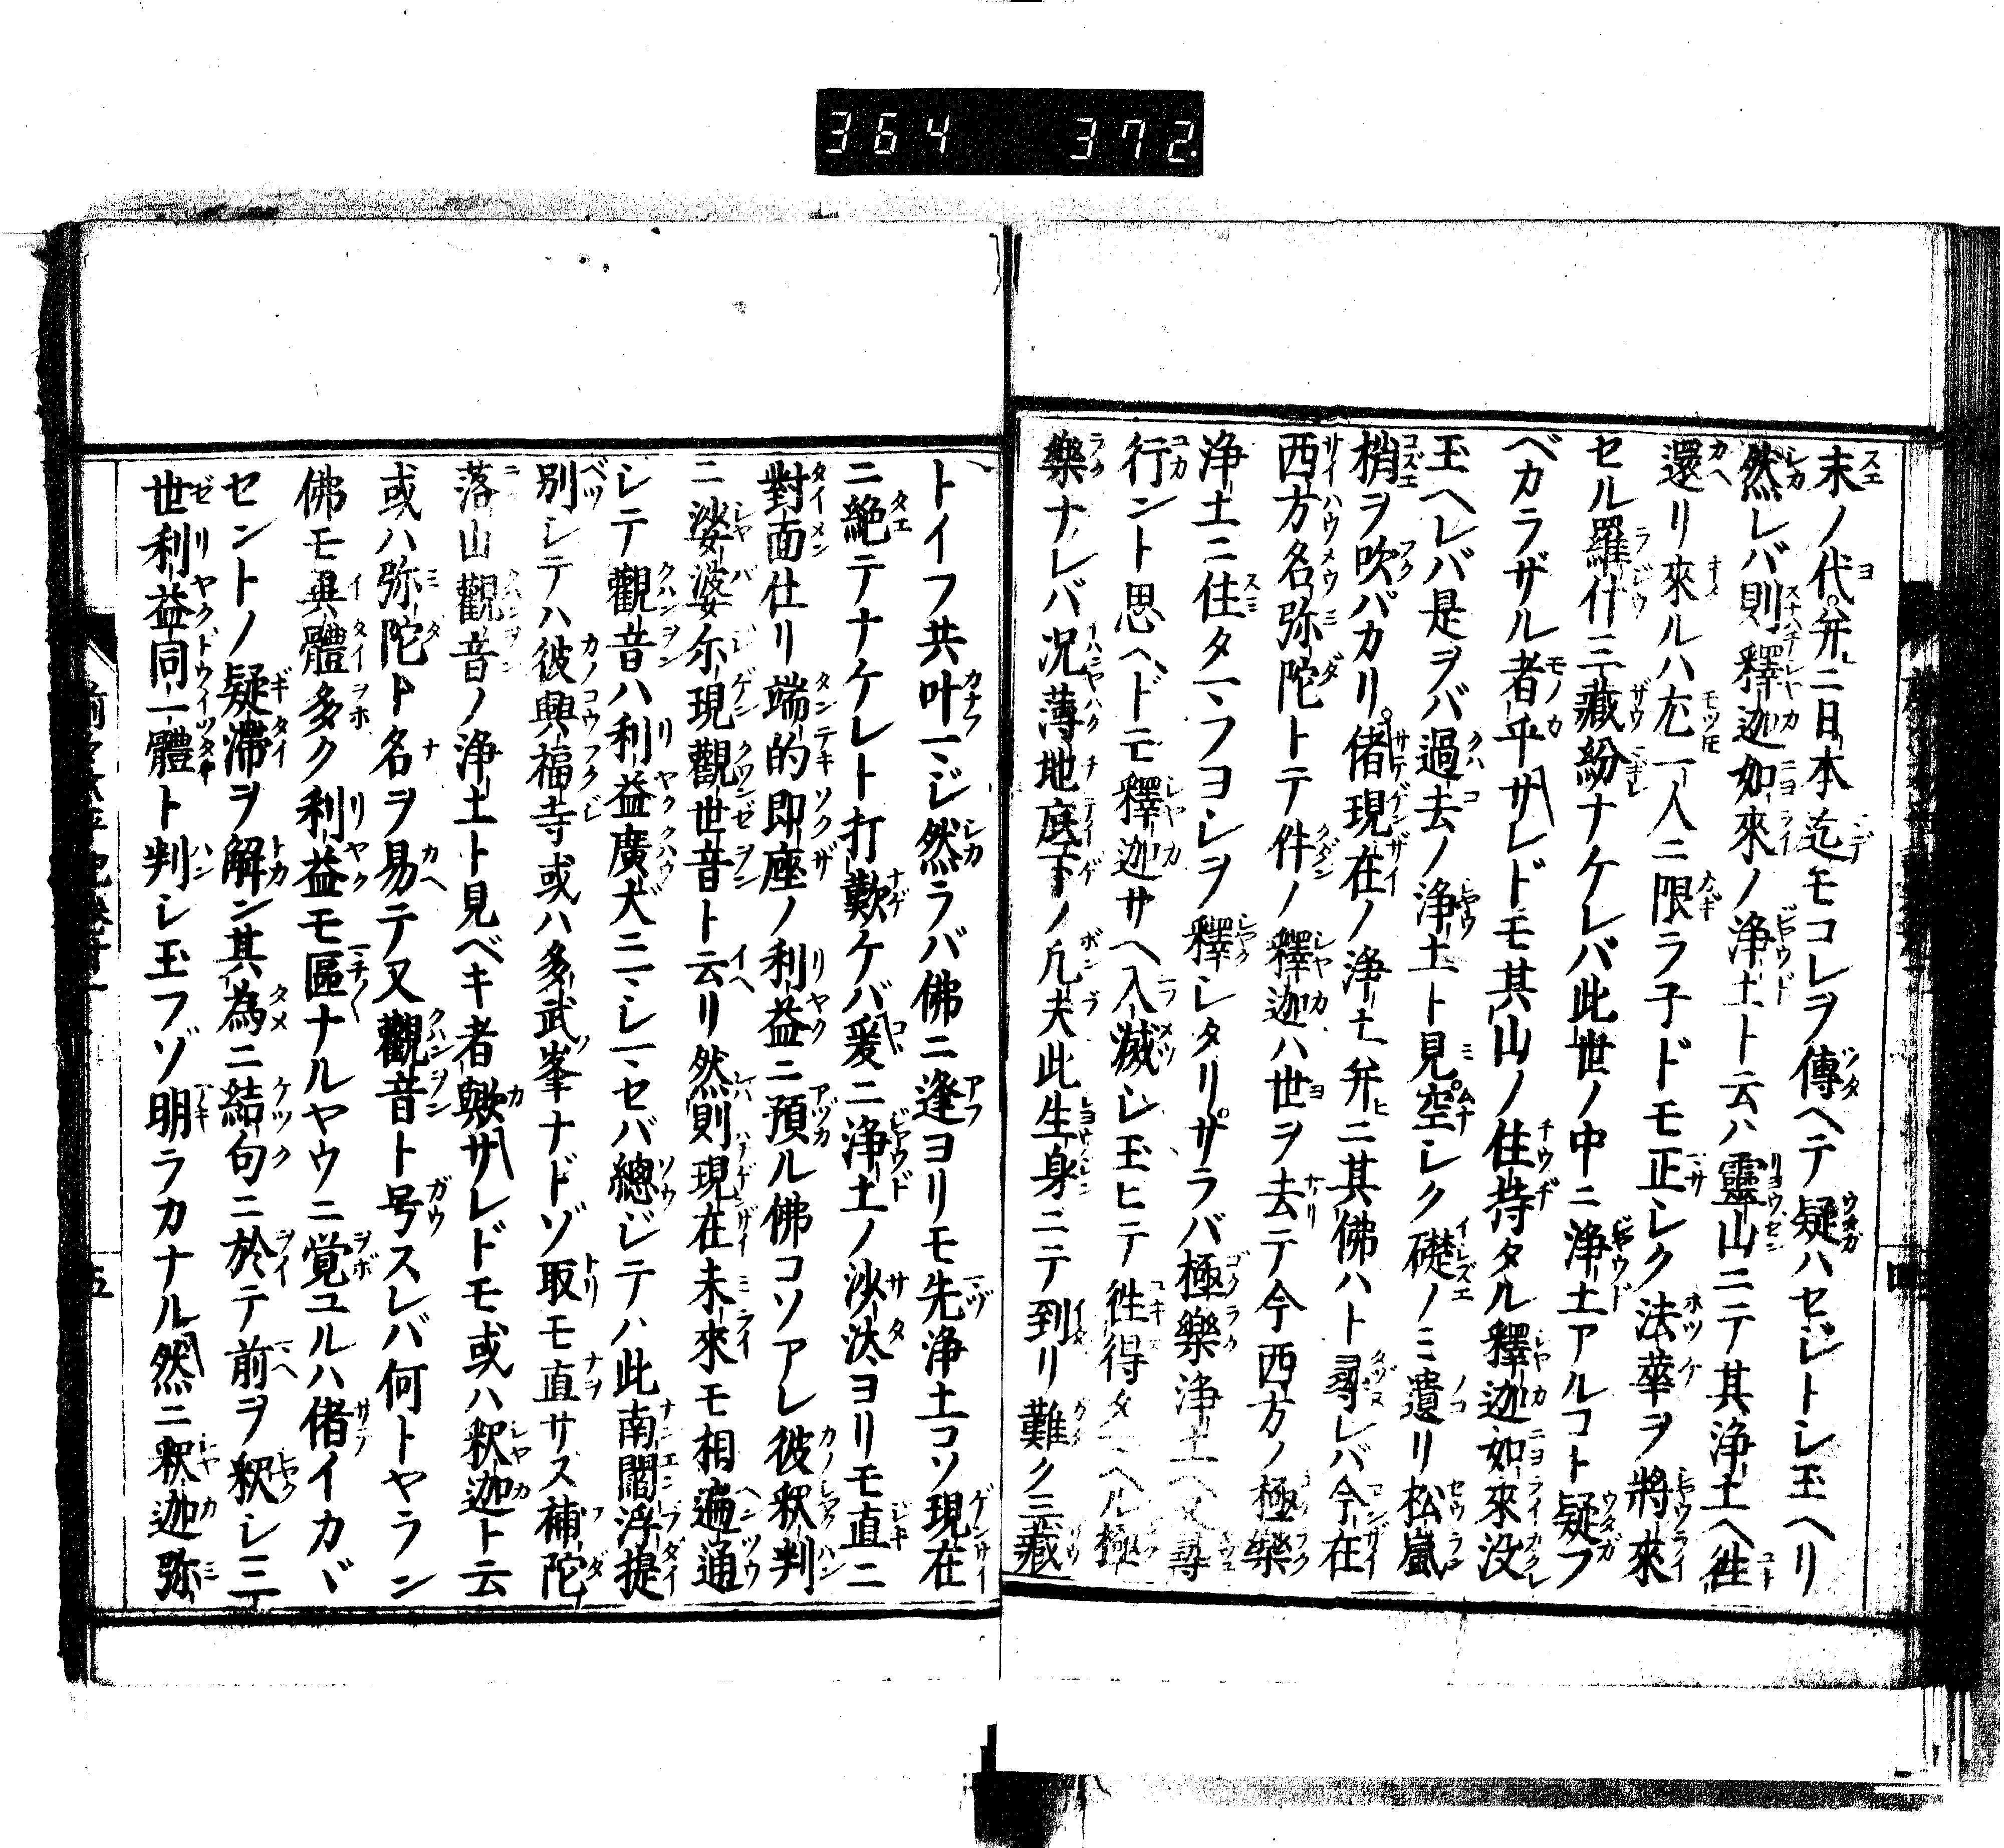 364 372.
末ノ代幷ニ日本迄モコレヲ傳ヘテ疑ハセジトシ玉ヘリ
然レバ則釋迦如來ノ浄土ト云ハ靈山ニテ其浄土ヘ徃
還リ來ルハ尤一人ニ限ラ子ドモ正シク法華ヲ將來
セル羅什三藏紛ナケレバ此世ノ中ニ浄土アルコト疑フ
ベカラザル者乎サレドモ其山ノ住持タル釋迦如來没
玉ヘレバ是ヲバ過去ノ浄土ト見空シク礎ノミ遺リ松嵐
梢ヲ吹バカリ偖現在ノ浄土幷ニ其佛ハト尋レバ今在
西方名弥陀トテ件ノ釋迦ハ世ヲ去テ今西方ノ極樂
浄土ニ住タマフヨシヲ釋シタリサラバ極樂浄土ヘ又尋
行ント思ヘドモ釋迦サヘ入滅シ玉ヒテ徃得タマヘル極
樂ナレバ况薄地底下ノ凡夫此生身ニテ到リ難ク三藏
トイフ共叶マジ然ラバ佛ニ逢ヨリモ先浄土コソ現在
ニ絶テナケレト打歎ケバ爰ニ浄土ノ沙汰ヨリモ直ニ
對面仕リ端的即座ノ利益ニ預ル佛コソアレ彼釈判
ニ娑婆示現觀世音ト云リ然則現在未來モ相遍通
シテ觀音ハ利益廣大ニマシマセバ總ジテハ此南閻浮提
別シテハ彼興福寺或ハ多武峯ナドゾ取モ直サス補陀
落山觀音ノ浄土ト見ベキ者歟サレドモ或ハ釈迦ト云
或ハ弥陀ト名ヲ易テ又觀音ト号スレバ何トヤラン
佛モ異體多ク利益モ區ナルヤウニ覚ユルハ偖イカヾ
セントノ疑滞ヲ解ン其為ニ結句ニ於テ前ヲ釈シ三
世利益同一體ト判シ玉フゾ明ラカナル然ニ釈迦弥